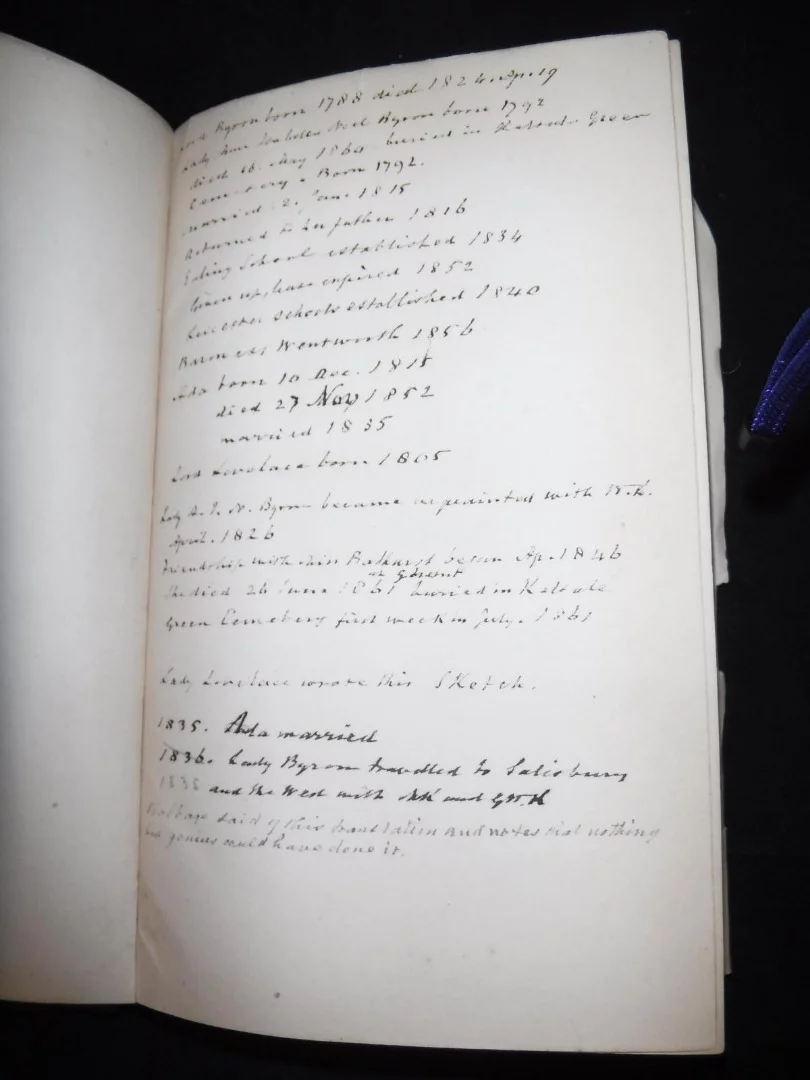 Lord Byron born 1788 died 1824. Ap. 19
Lady Ann Isabella Noel Byron born 1792
died 16. May 1860 buried in Kensal Green
Cemetery. Born 1792.
married 2. Jan. 1815
Returned to her father 1816
Ealing School established 1834
Given up, lease expired 1852
Leicester Schools established 1840
Baroness Wentworth 1856
Ada born 10 Dec. 1815
died 27 Nov 1852
married 1835
Lord Lovelace born 1805
Lady A. I. N. Byron became acquainted with W.K.
April. 1826
Friendship with Miss Bathurst began Ap. 1846
at Ghent
She died 26 June 1861 buried in Kensale
Green Cemetery first week in July. 1861
Lady Lovelace wrote this Sketch.
1835. Ada married
1836. Lady Byron travelled to Salisbury
1835 and the West with MK and GWK
Babbage said of this translation and notes that nothing
but genius could have done it.